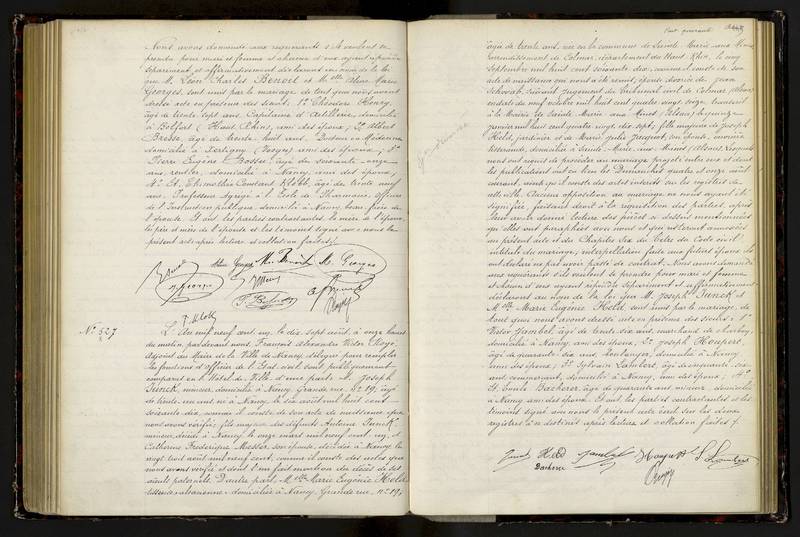 Nous avons demandé aux requérants s'ils veulent se
prendre pour mari et femme et chacun d'eux ayant répondu
séparément et affirmativement déclarons au nom de la loi
que M. Léon Charles Benoit et Mlle Aline Marie
Georges, sont unis par le mariage de tout quoi nous avons
dressé acte en présence des sieurs: 1° Théodore Henry,
âgé de trente sept ans, Capitaine d'Artillerie, domicilié
à Belfort (Haut Rhin), ami des époux; 2° Albert
Brosse, âgé de trente huit ans, Docteur en Médecine
domicilié à Xertigny (Vosges) ami des époux; 3°
Pierre Eugène Bosser, âgé de soixante onze
ans, rentier, domicilié à Nancy, ami des époux;
4° et Constant Klobb, âgé de trente neuf
ans, Professeur agrégé à l'Ecole de Pharmacie, Officier
de l'Instruction publique, domicilié à Nancy, beau-frère de
l'épouse. Et ont les parties contractantes, la mère de l'époux,
les père et mère de l'épouse et les témoins signé avec nous le
présent acte après lecture et collation faites.
Aline Georges Benoit M. Georges
T. Klobb
N° 527
L'An mil neuf cent un, le dix sept août, à onze heures
du matin, par devant nous, François Alexandre Victor
Adjoint au Maire de la Ville de Nancy, délégué pour remplir
les fonctions d'officier de l'Etat civil sont publiquement
comparus en l'Hôtel de Ville, d'une part M. Joseph
Junck, mineur, domicilié à Nancy, Grande rue, N° 19, âgé
de trente un ans, né à Nancy, le six août mil huit cent
soixante dix, comme il conste de son acte de naissance que
nous avons vérifié; fils majeur des défunts Antoine Junck
mineur, décédé à Nancy le onze mars mil neuf cent un, et
Catherine Frédérique Messer, son épouse, décédée à Nancy le
vingt trois août mil neuf cent, comme il conste des actes que
nous avons vérifié et dont l'un fait mention du décès de ses
aïeuls paternels. D'autre part, Mlle Marie Eugénie Held
domiciliée à Nancy, Grande rue, N° 19,
huit quarante
âgée de trente ans, née en la commune de Sainte Marie aux Mines
arrondissement de Colmar, département du Haut Rhin, le cinq
septembre mil huit cent soixante dix, comme il conste de son
acte de naissance qui nous a été remis, épouse divorcée de Jean
Schwab, suivant jugement du Tribunal civil de Colmar (Alsace)
en date du neuf octobre mil huit cent quatre vingt seize, transcrit
à la Mairie de Sainte Marie aux Mines (Alsace) le quinze
janvier mil huit cent quatre vingt dix sept; fille majeure de Joseph
Held, jardinier et de Marie Julie son épouse,
domiciliés à Sainte Marie aux Mines (Alsace). Lesquels
nous ont requis de procéder au mariage projeté entre eux et dont
les publications ont eu lieu les Dimanches quatre et onze août
courant, ainsi qu'il conste des actes insérés sur les registres de
cette ville. Aucune opposition au mariage ne nous ayant été
signifiée, faisant droit à la réquisition des parties, après
leur avoir donné lecture des pièces ci dessus mentionnées
qu'elles ont paraphées avec nous et qui resteront annexées
au présent acte et du Chapitre Six du Titre du Code civil
intitulé du mariage, interpellation faite aux futurs époux ils
ont déclaré ne pas avoir passé de contrat. Nous avons demandé
aux requérants s'ils veulent se prendre pour mari et femme
et chacun d'eux ayant répondu séparément et affirmativement
déclarons au nom de la loi que M. Joseph Junck et
Mlle Marie Eugénie Held, sont unis par le mariage, de
tout quoi nous avons dressé acte en présence des sieurs: 1°
Victor Jambel, âgé de trente six ans, marchand de charbon,
domicilié à Nancy, ami des époux; 2° Joseph Houpert,
âgé de quarante six ans, boulanger, domicilié à Nancy
ami des époux; 3° Sylvain Lambert, âgé de cinquante six
ans, commerçant, domicilié à Nancy, ami des époux; 4°
et Emile Bacherer, âgé de quarante ans, mineur, domicilié
à Nancy, ami des époux. Et ont les parties contractantes et les
témoins signé avec nous le présent acte écrit sur les deux
registres à ce destinés après lecture et collation faites.
Junck Held Jambel Houpert S. Lambert
Bacherer